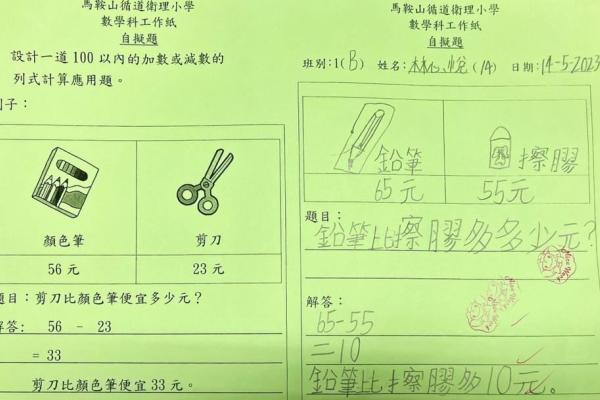 馬鞍山循道衛理小學
數學科工作紙
自擬題
設計一道 100 以內的加數或減數的
列式計算應用題。
例子：
顏色筆 剪刀
56 元 23 元
題目：剪刀比顏色筆便宜多少元？
解答： 56 － 23
= 33
剪刀比顏色筆便宜 33 元。
馬鞍山循道衛理小學
數學科工作紙
自擬題
班別：1( B ) 姓名：林心悅 (14) 日期：14-5-2023
鉛筆 擦膠
65元 55元
題目：
鉛筆比擦膠多多少元？
解答：
65-55
=10
鉛筆比擦膠多10元。